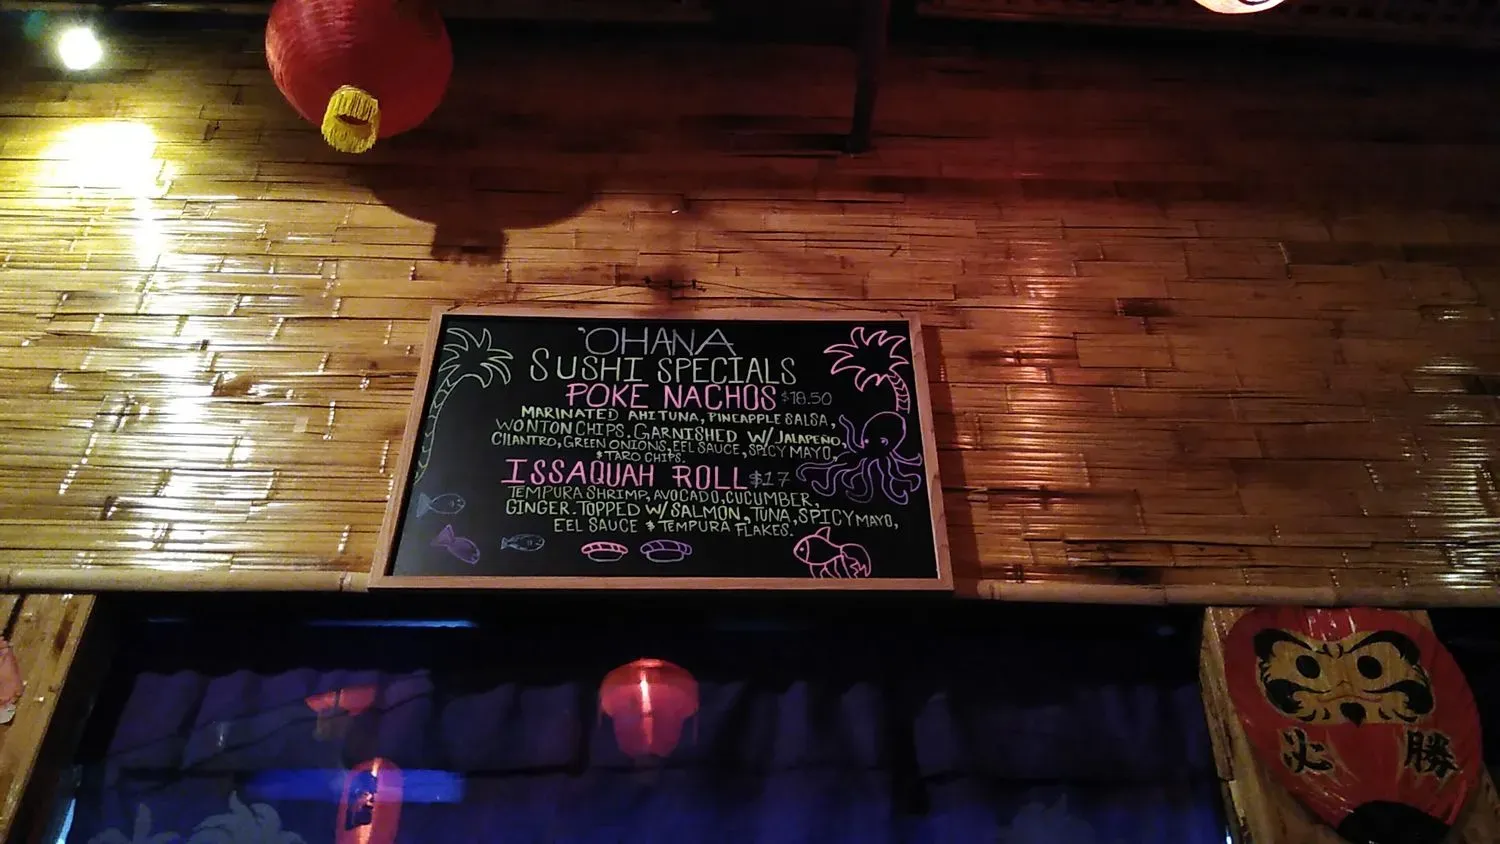 'OHANA
SUSHI SPECIALS
POKE NACHOS $18.50
MARINATED AHI TUNA, PINEAPPLE SALSA,
WONTON CHIPS. GARNISHED W/ JALAPEÑO,
CILANTRO, GREEN ONIONS, EEL SAUCE, SPICY MAYO,
& TARO CHIPS.
ISSAQUAH ROLL $17
TEMPURA SHRIMP, AVOCADO, CUCUMBER,
GINGER. TOPPED W/ SALMON, TUNA, SPICY MAYO,
EEL SAUCE & TEMPURA FLAKES.
必勝